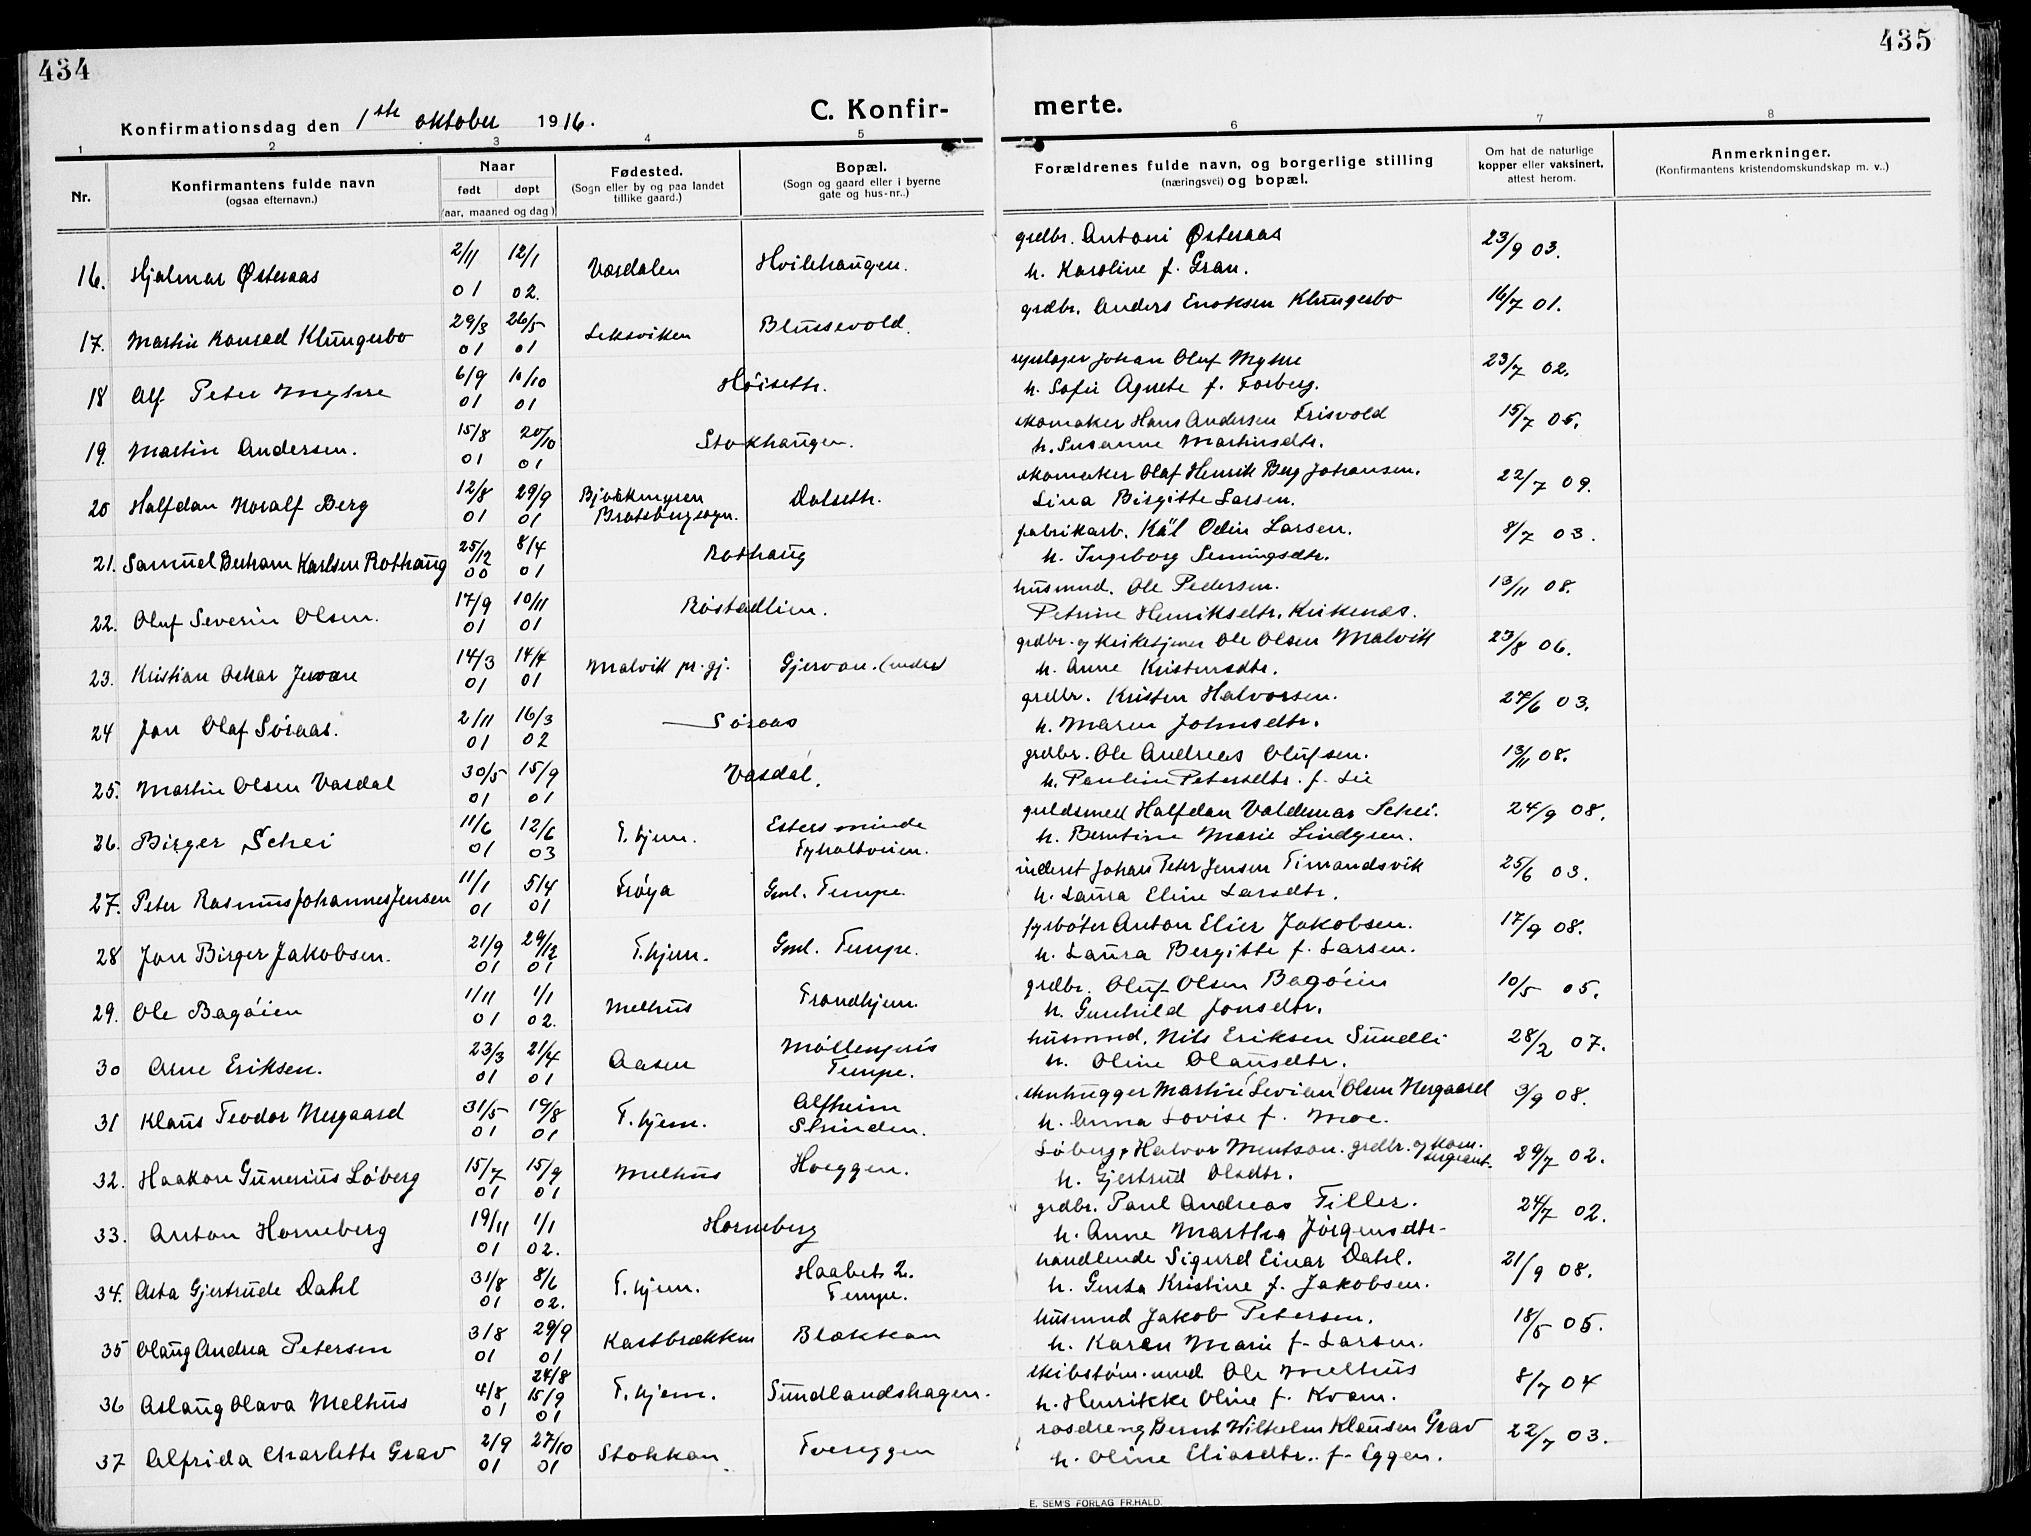 434
435
Konfirmationsdag den 1ste oktober 1916.
C. Konfirmerte.
1 2 3 4 5 6 7 8
Nr.
Konfirmantens fulde navn
(ogsaa efternavn.)
Naar
født døpt
(aar, maaned og dag)
Fødested.
(Sogn eller by og paa landet
tillike gaard.)
Bopæl.
(Sogn og gaard eller i byerne
gate og hus-nr..)
Forældrenes fulde navn, og borgerlige stilling
(næringsvei) og bopæl.
Om hat de naturlige
kopper eller vaksinert,
attest herom.
Anmerkninger.
(Konfirmantens kristendomskundskap m. v..)
16. Hjalmar Østeraas 2/11 01 12/1 02. Vasdalen Hvilehaugen. grdbr. Antoni Østeraas 23/9 03.
h. Karoline f. Gran.
17. Martin Konrad Klungerbo 29/3 01 26/5 01 Leksviken Blussevold. grdbr. Anders Enoksen Klungerbo 16/7 01.
18 Alf Peter Myhre 6/9 01 10/10 01 Høiseth. repslager Johan Oluf Myhre 23/7 02.
h. Sofie Agnete f. Forberg.
19. Martin Andersen. 15/8 01 20/10 01 Stokhaugen. skomaker Hans Andersen Frisvold 15/7 05.
h. Susanne Martinsdtr.
20 Halfdan Noralf Berg 12/8 01 29/9 01 Bjørkmyren Dalseth. skomaker Olaf Henrik Berg Johansen. 22/7 09.
Bratsbergsogn. Lina Birgitte Larsen.
21. Samuel Bertram Karlsen Rothaug 25/12 00 8/4 01 Rothaug fabrikarb. Kal Odin Larsen. 8/7 03.
h. Ingeborg Semingsdtr.
22. Oluf Severin Olsen. 17/9 01 10/11 01 Røstadlien. husmnd. Ole Pedersen. 13/11 08.
Petrine Henriksdtr. Kirkenæs.
23. Kristian Oskar Jervan 14/3 01 14/4 01 Malvik pr. gj. Gjervan. (nedre) grdbr. og kirketjener Ole Olsen Malvik 23/8 06.
h. Anne Kristensdtr.
24 Jon Olaf Søraas. 2/11 01 16/3 02 Søraas grdbr. Kristen Halvorsen. 27/6 03.
h. Maren Johnsdtr.
25. Martin Olsen Vasdal 30/5 01 15/9 01 Vasdal. grdbr. Ole Andreas Olufsen. 13/11 08.
h. Pauline Petersdtr. f. Lie
26. Birger Schei 11/6 01 12/6 03 T.hjem. Esters minde guldsmed Halfdan Valdemar Schei. 24/9 08.
Tyholtveien. h. Berntine Marie Lindgren.
27. Peter Rasmus Johannes Jensen 11/1 01 5/4 01 Frøya Gml. Tempe. inderst Johan Peter Jensen Timandsvik 25/6 03.
h. Laura Eline Larsdtr.
28 Jon Birger Jakobsen. 21/9 01 29/12 01 T.hjem. Gml. Tempe. fyrbøter Anton Elier Jakobsen. 17/9 08.
h. Laura Bergitte f. Larsen.
29. Ole Bagøien 1/11 01 1/1 02. Melhus Trondhjem. grdbr. Oluf Olsen Bagøien 10/5 05.
h. Gunhild Jonsdtr.
30 Arne Eriksen. 23/3 01 21/4 01 Aasen Møllenpris husmnd. Nils Eriksen Sundli 28/2 07.
Tempe. h. Oline Olausdtr.
31 Klaus Teodor Nergaard 31/5 01 19/8 01 T.hjem. Alfheim stenhugger Martin (Levian) Olsen Nergaard 3/9 08.
Strinden. h. Anna Lovise f. Moe.
32. Haakon Gunerius Løberg 15/7 01 15/9 01 Melhus Hoeggen. Løberg, Halvor Mentson. grdbr. og kom. sergeant. 29/7 02.
h. Gjertrud Olsdtr.
33. Anton Horneberg 19/11 01 1/1 02. Horneberg grdbr. Paul Andreas Tiller. 24/7 02.
h. Anne Martha Jørgensdtr.
34. Asta Gjertrude Dahl 31/8 01 8/6 02. T.hjem. Haabet 2. handlende Sigurd Einar Dahl. 21/9 08.
Tempe. h. Gusta Kristine f. Jakobsen.
35 Olaug Andrea Petersen 31/8 01 29/9 01 Kastbrækken Blækkan husmnd Jakob Petersen. 18/5 05.
h. Karen Marie f. Larsen.
36 Aslaug Olava Melhus 4/8 01 24/8 15/9 01 T.hjem. Sundlandshagen. skibstøm. mnd Ole Melhus 8/7 04
h. Henrikke Oline f. Kvam.
37 Alfrida Charlotte Grav 2/9 01 27/10 01 Stokkan Tvereggen rosdreng Bernt Wilhelm Klausen Grav 22/7 03.
h. Oline Eliasdtr. f. Eggen.
E. SEM'S FORLAG FR.HALD.